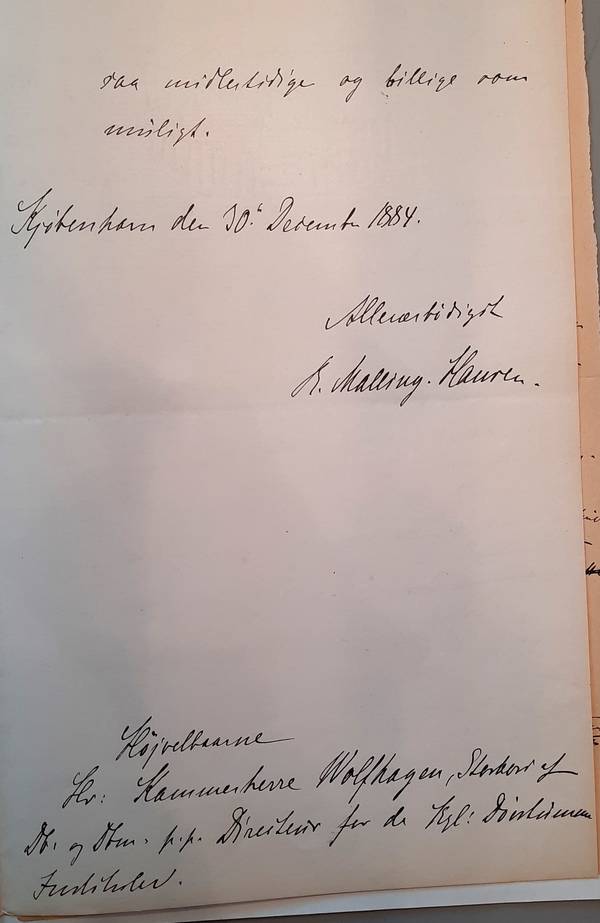 saa midlertidige og billige som
muligt.
Kjøbenhavn den 30' December 1884.
Allerærbødigst
R. Malling-Hansen.
Højvelbaarne
Hr: Kammerherre Wolfhagen, Storkors af
Db. og Dbm. p.p. Directeur for de Kgl: Døvstumme
Instituter.